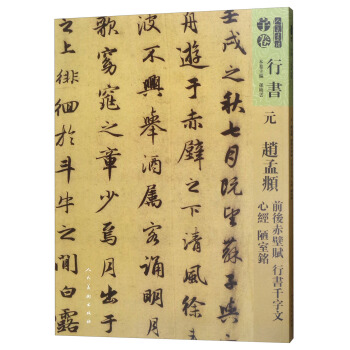 壬戌之秋七月既望蘇子與客
舟遊于赤壁之下清風徐
波不興舉酒屬客誦明月
歌窈窕之章少焉月出于
之上徘徊於斗牛之間白露
子卷
行書
元
趙孟頫
前後赤壁賦 行書千字文
心經 陋室銘
人民美術出版社